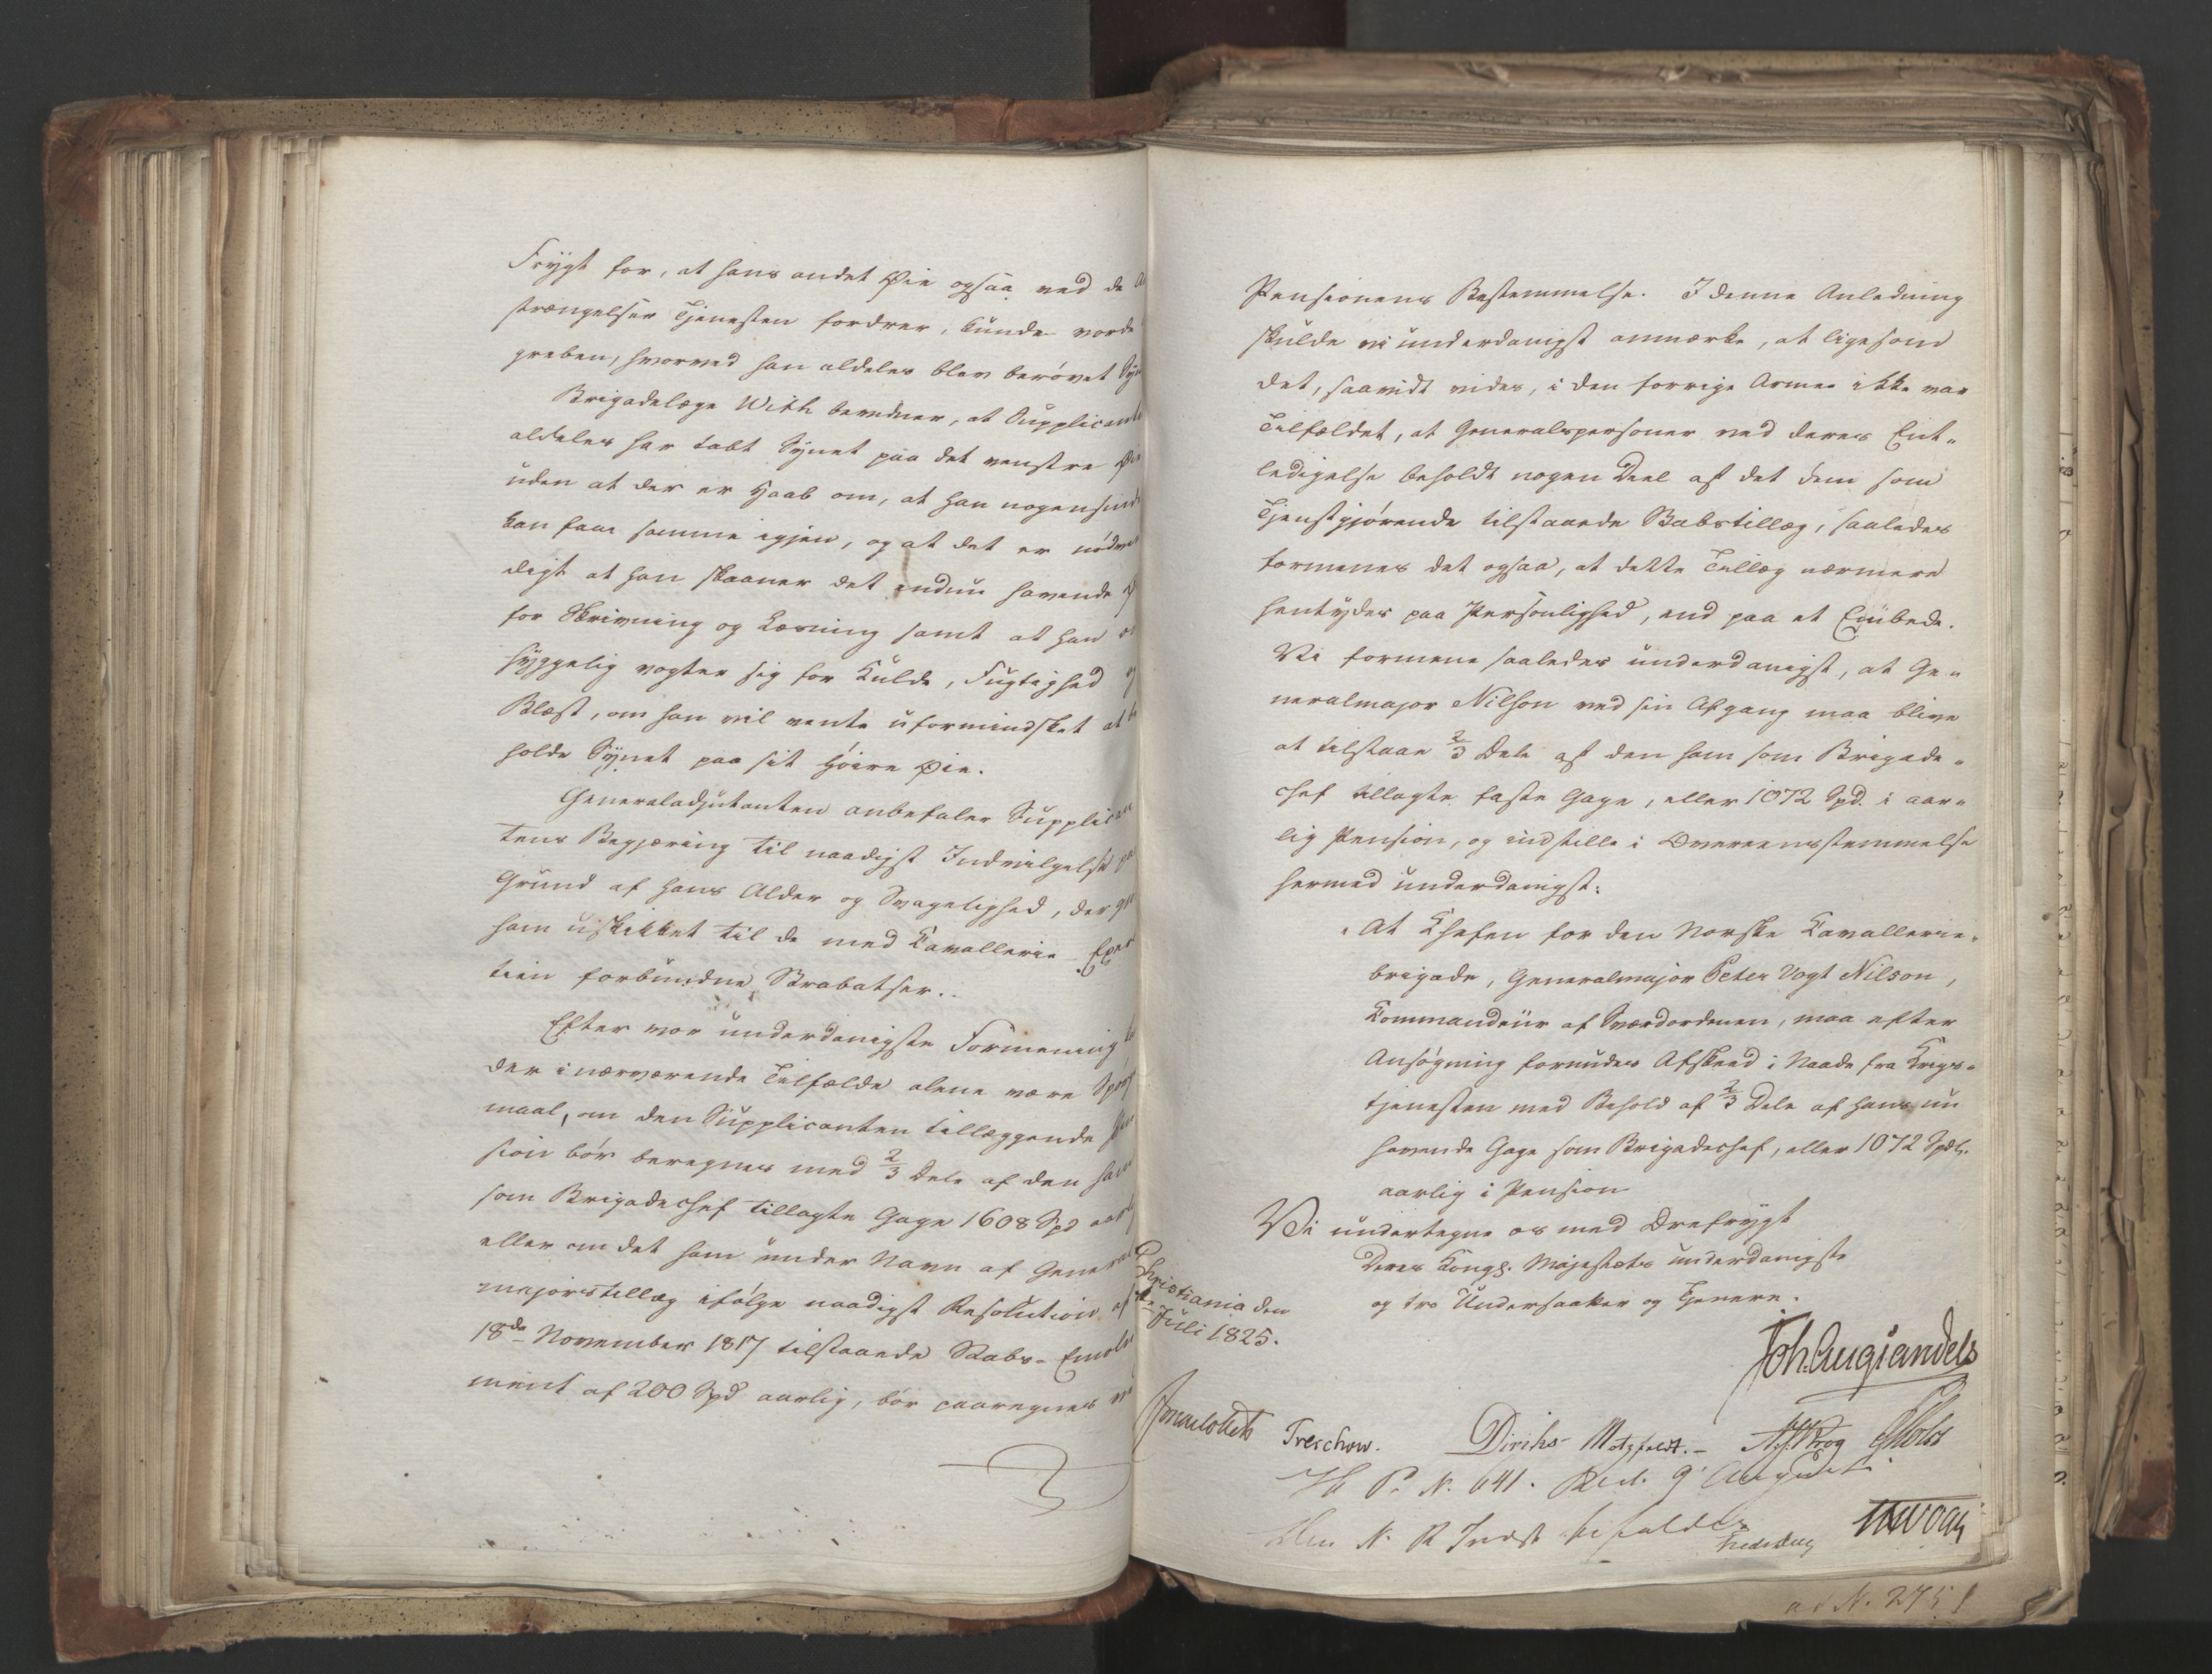 Frygt for, at hans andet Øie ogsaa ved de
strængelser Tjenesten fordrer, kunde vorde
greben, hvorved han aldeles blev berøvet
Brigadelæge With bevidner, at Supplicant
aldeles har tabt Synet paa det venstre Øie
uden at der er Haab om, at han nogensinde
kan faae samme igjen, og at det er nødven
digt at han skaaner det endnu havende
for Skrivning og Læsning samt at han
hyggelig vogter sig for Kulde, Fugtighed og
Blæst, om han vil vente uformindsket at be
holde Synet paa sit høire Øie.
Generaladjutanten anbefaler Supplican
tens Begjæring til naadigst Indvilgelse paa
Grund af hans Alder og Svagelighed, der
ham uskikket til de med Cavallerie-Exer
tien forbundne Strabatser.
Efter vor underdanigste Formening
der i nærværende Tilfælde alene være Spørgs
maal, om den Supplicanten tillæggende Pen
sion bør beregnes med 2/3 Dele af den ham
som Brigadechef tillagte Gage 1608 Spd aarlig
eller om det ham under Navn af General
majorstillæg ifølge naadigst Resolution af
18de November 1817 tilstaaede Rabs-Emolu
ment af 200 Spd aarlig, bør paaregnes ved
Pensionens Bestemmelse. I denne Anledning
skulde vi underdanigst anmærke, at ligesom
det, saavidt vides, i den forrige Armee ikke var
Tilfældet, at Generalspersoner ved deres Ent„
ledigelse beholdt nogen Deel af det dem som
Tjenstgjørende tilstaaede Rabstillæg, saaledes
formenes det ogsaa, at dette Tillæg nærmere
hentydes paa Personlighed, end paa et Embede.
Vi formene saaledes underdanigst, at Ge„
neralmajor Nilson ved sin Afgang maa blive
at tilstaae 2/3 Dele af den ham som Brigade„
chef tillagte faste Gage, eller 1072 Spd. i aar„
lig Pension, og indstille i Overeensstemmelse
hermed underdanigst:
„At Chefen for den Norske Cavallerie„
brigade, Generalmajor Peter Vogt Nilson,
Kommandeur af Sværdordenen, maa efter
Ansøgning forundes Afskeed i Naade fra Krigs„
tjenesten med Behold af 2/3 Dele af hans nu
havende Gage som Brigadechef, eller 1072 Spdlr.
aarlig i Pension
Vi undertegne os med Ærefrygt
Deres Kongl. Majestæts underdanigste
og tro Undersaatter og Tjenere.
Christiania den
Juli 1825.
Joh. Aug Sandels
Treschow. Diriks Motzfeldt.- Krog
H P. N. 641. Red. 9 August
N. R Indst bifaldes
ad N. 275